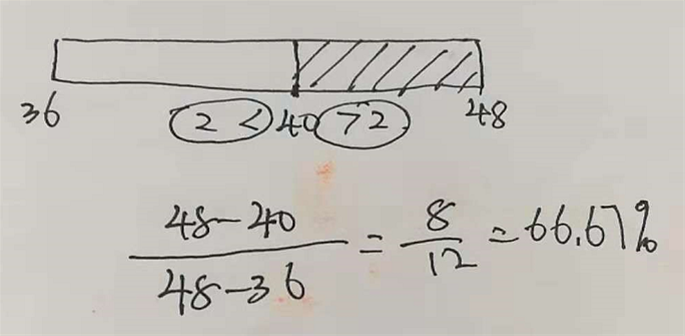 36 2< 40 >2 48
48-40 / 48-36 = 8/12 = 66.67%